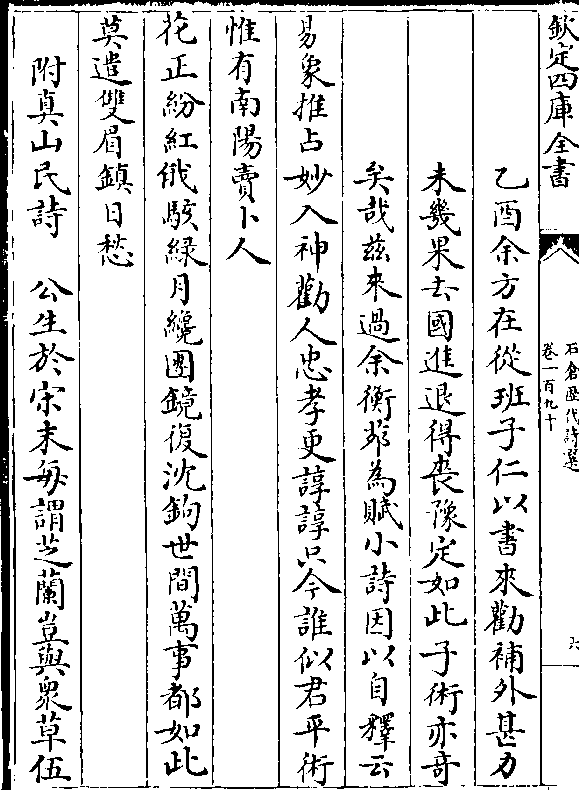 欽定四庫全書
石倉歷代詩選
卷一百九十
六
乙酉余方在從班子仁以書來勸補外甚力
未幾果去國進退得喪豫定如此子術亦竒
矣哉兹來過余衡茅為賦小詩因以自釋云
易象推占妙入神勸人忠孝更諄諄只今誰似君平術
惟有南陽賣卜人
花正紛紅俄駭綠月纔團鏡復沈鉤世間萬事都如此
莫遣雙眉鎮日愁
附真山民詩　公生於宋末每謂芝蘭豈與衆草伍